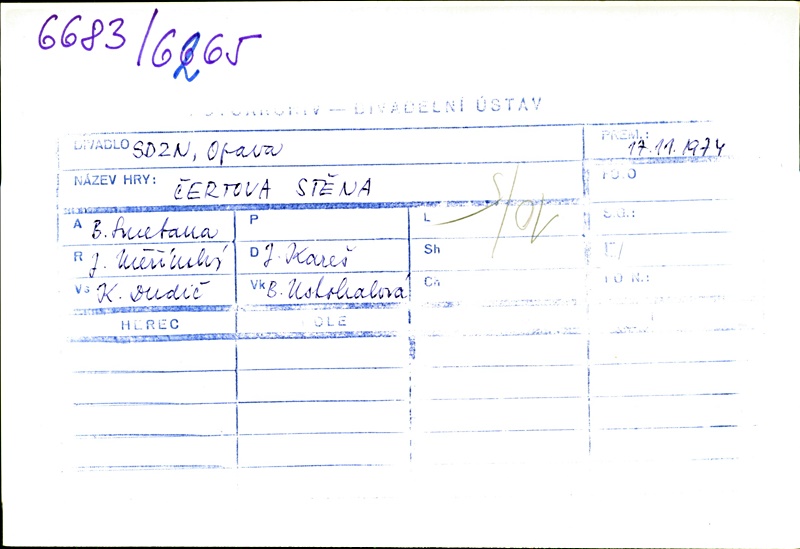 6683/6265
FOTOARCHIV — DIVADELNÍ ÚSTAV
DIVADLO SDZN, Opava PREM.: 17.11.1974
NÁZEV HRY: ČERTOVA STĚNA
A B. Smetana P L
R J. D J. Kareš Sh
Vs K. Dudič Vk B. Uskohalová Ch
HEREC ROLE